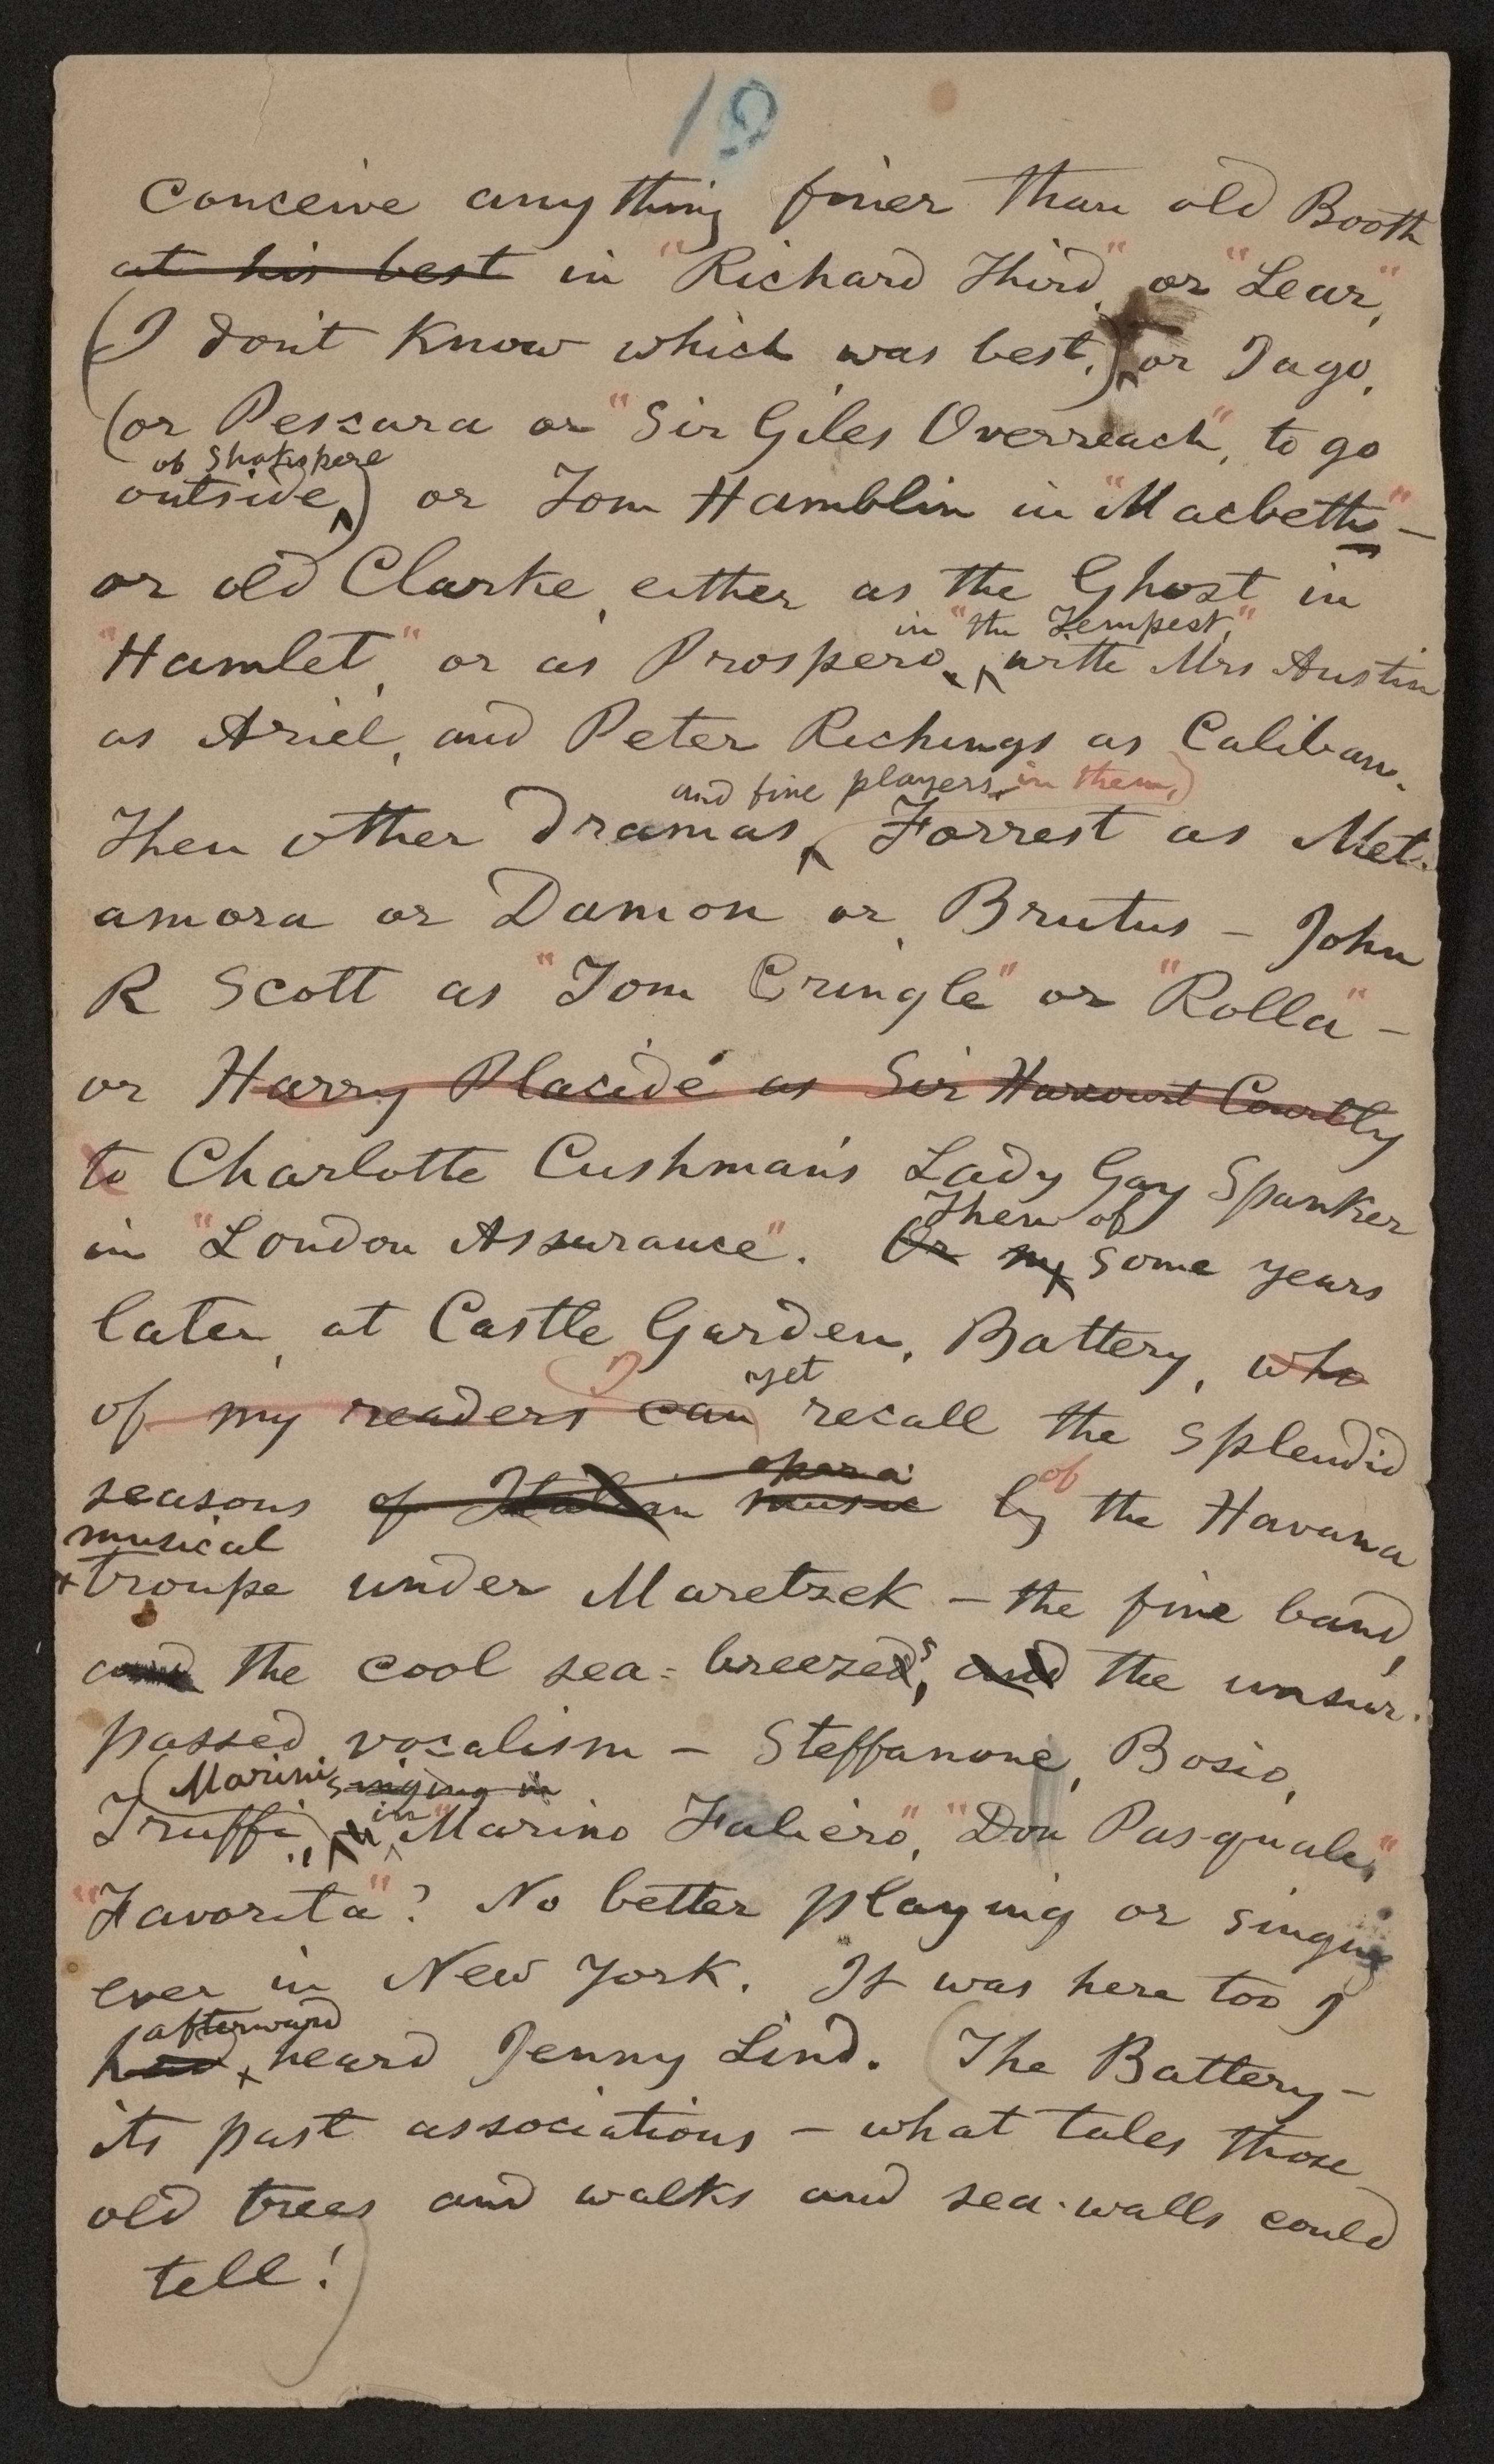 19
conceive anything finer than old Booth
at his best in "Richard Third," or "Lear,"
(I don't know which was best,) or Iago,
(or Pescara or "Sir Giles Overreach", to go
of Shakspere
outside) or Tom Hamblin in "Macbeth" –
or old Clarke, either as the Ghost in
in "the Tempest,"
"Hamlet," or as Prospero, with Mrs Austin
as Ariel, and Peter Richings as Caliban.
and fine players in them,)
Then other dramas, Forrest as Met-
amora or Damon or Brutus – John
R Scott as "Tom Cringle" or "Rolla" –
or Harry Placide as Sir Harcourt Courtly
to Charlotte Cushman's Lady Gay Spanker
in "London Assurance". Or my some years
Then of
later, at Castle Garden, Battery, who
yet
of my readers can recall the splendid
opera
seasons of Italian music by of the Havana
musical
troupe under Maretzek – the fine band,
and the cool sea-breezes, and the unsur-
passed vocalism – Steffanone, Bosio,
(Marini, singing in
Truffi, in "Marino Faliero," "Don Pasquale,"
"Favorita"? No better playing or singing
ever in New York. It was here too I
afterward
had heard Jenny Lind. (The Battery –
its past associations – what tales those
old trees and walks and sea-walls could
tell!)